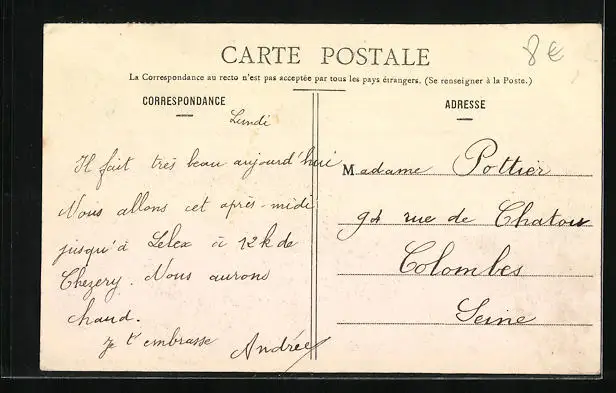 CARTE POSTALE
8€
La Correspondance au recto n'est pas acceptée par tous les pays étrangers. (Se renseigner à la Poste.)
CORRESPONDANCE
Lundi
Il fait très beau aujourd'hui
Nous allons cet après-midi
jusqu'à Lélex à 12k de
Chezery. Nous aurons
chaud.
Je t'embrasse Andrée
ADRESSE
Madame Pottier
rue de Chatou
Colombes
Seine